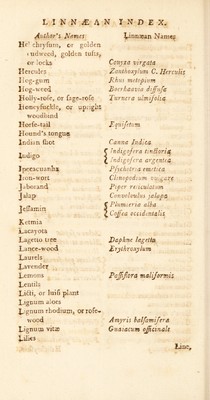 LINNÆAN INDEX.
Author's Names Linnæan Names
chrysum, or golden
cudweed, golden tufts,
or locks Conyza virgata
Hercules Zanthoxylum C. Herculis
Hog-gum Rhus metopium
Hog-weed Boerhaavia diffusa
Holly-rose, or sage-rose Turnera ulmifolia
Honeysuckle, or upright
woodbind
Horse-tail Equisetum
Hound's tongue
Indian shot Canna Indica
Indigo { Indigofera tinctoria
{ Indigofera argentea
Ipecacuanha Psychotria emetica
Iron-wort Clinopodium
Jaborand Piper reticulatum
Jalap Convolvulus jalapa
Jessamin { Plumieria alba
{ Coffea occidentalis
Ketmia
Lacayota
Lagetto tree Daphne lagetto
Lance-wood Erythroxylum
Laurels
Lavender
Lemons Passiflora maliformis
Lentils
or luisi plant
Lignum aloes
Lignum rhodium, or rose-
wood Amyris balsamifera
Lignum vitæ Guaiacum officinale
Lilies